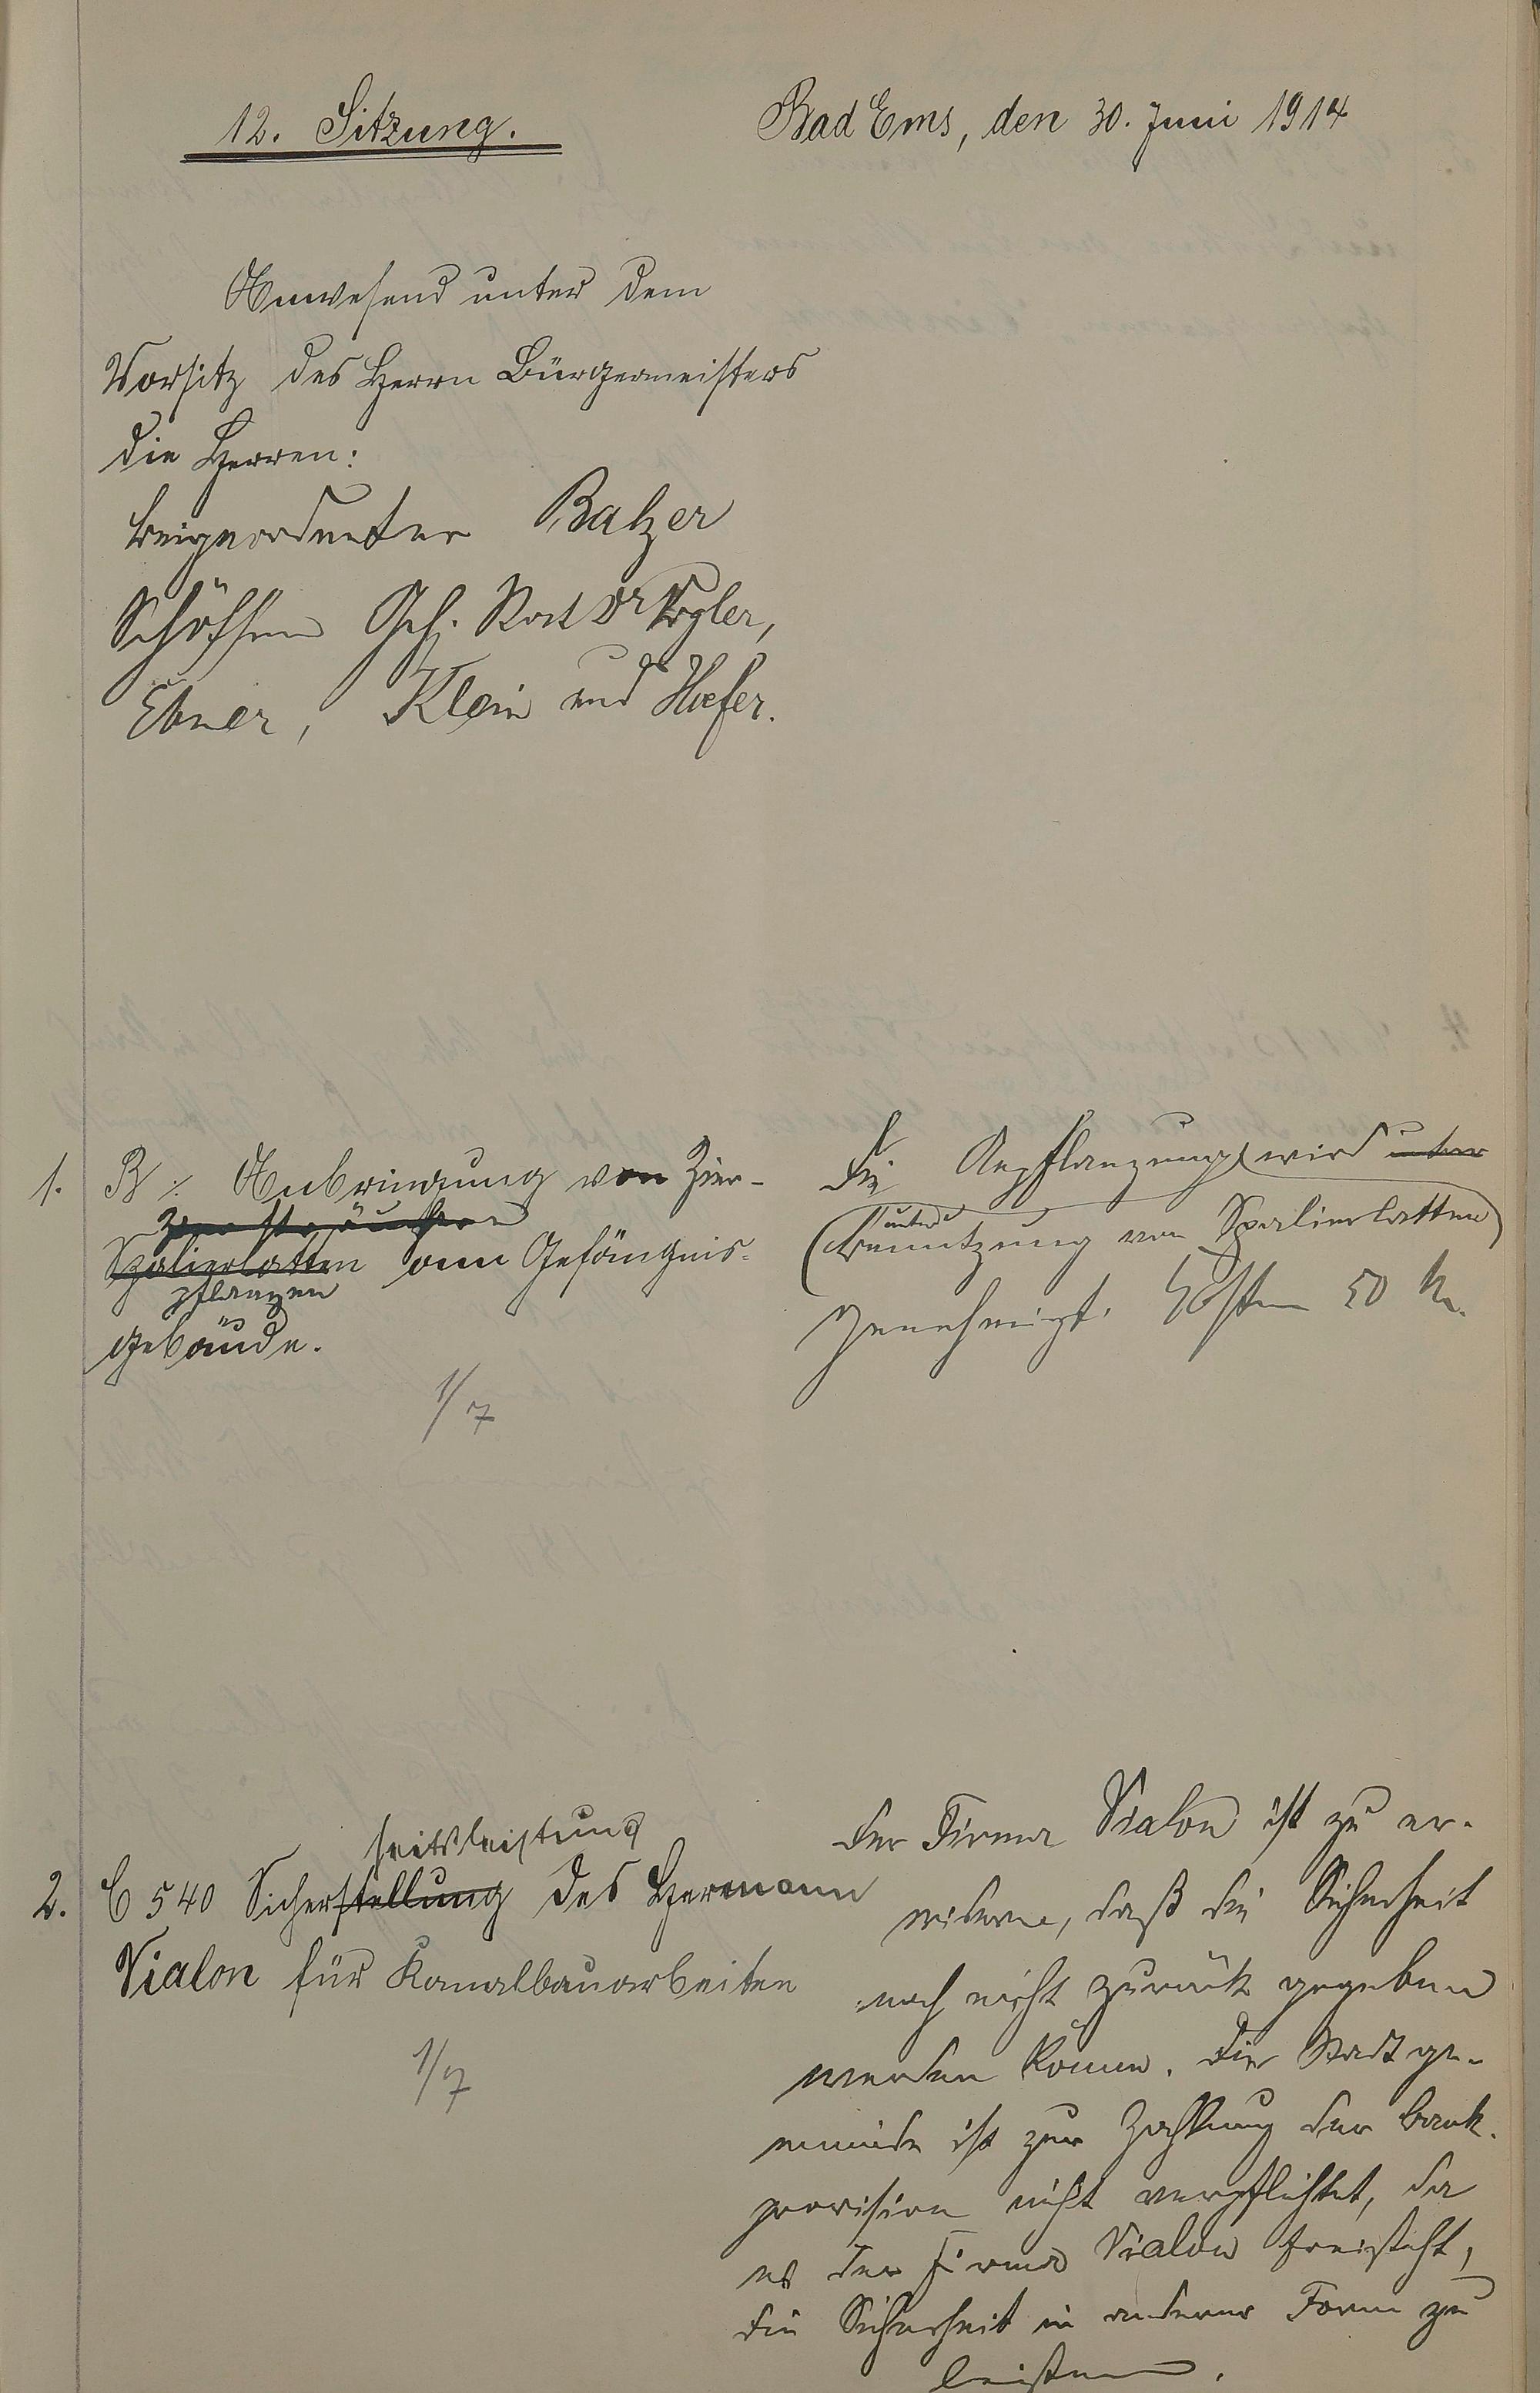 12. Sitzung.
Bad Ems, den 30. Juni 1914
Anwesend unter dem
Vorsitz des Herrn Bürgermeisters
die Herren:
Beigeordneter Balzer
Schöffen Geh. Rat Dr Vogler,
Ebner, Klein und Hoefer.
1. B ./. Anbringung von Zier-
Ziersträuchern
Spalierlatten am Gefängnis-
pflanzen
gebäude.
1/7
Die Anpflanzung wird unter
(unter
Benutzung von Spalierlatten)
genehmigt. Kosten 50 M.
heitsleistung
2. C 540 Sicherstellung des Hermann
Vialon für Kanalbauarbeiten
1/7
Der Firma Vialon ist zu er-
widern, daß die Sicherheit
noch nicht zurück gegeben
werden könne. Die Stadtge-
meinde ist zur Zahlung der Bank-
provision nicht verpflichtet, da
es der Firma Vialon freisteht,
die Sicherheit in anderer Form zu
leisten.